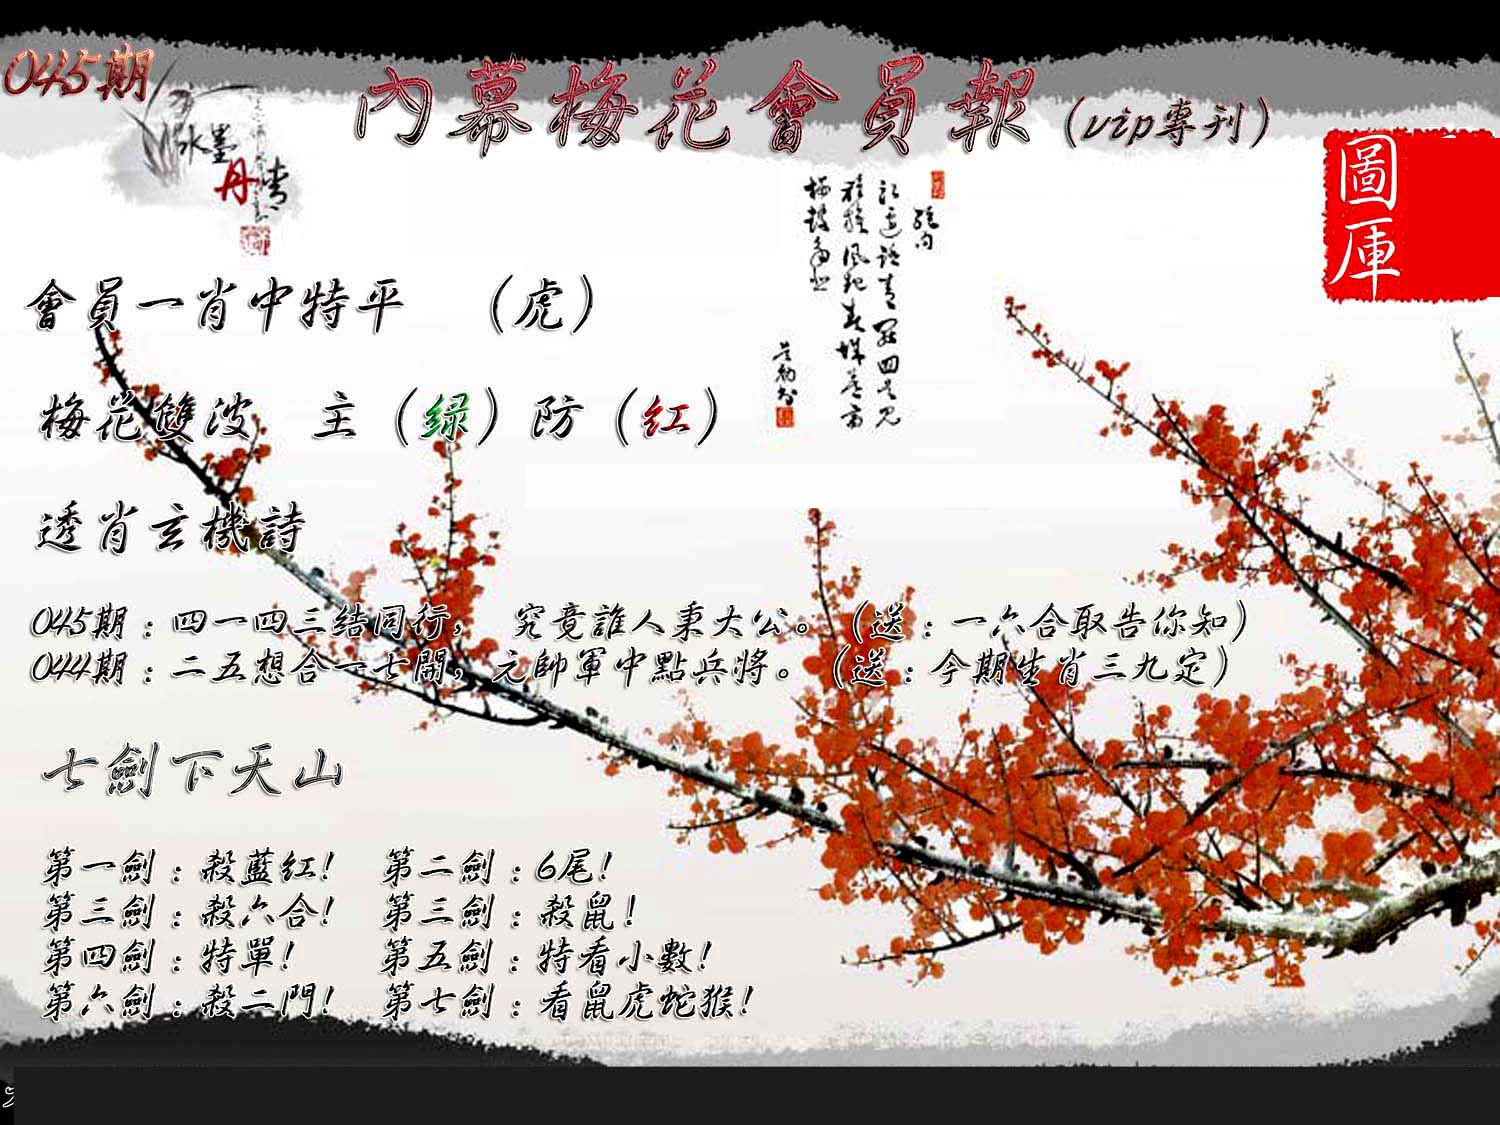 045期
內幕梅花會員報（vip專刊）
水墨
丹青
圖
庫
會員一肖中特平　（虎）
梅花雙波　主（绿）防（红）
透肖玄機詩
045期：四一四三結同行，　究竟誰人秉大公。（送：一六合取告你知）
044期：二五想合一七開，元帥軍中點兵將。（送：今期生肖三九定）
七劍下天山
第一劍：殺藍紅!　第二劍：6尾!
第三劍：殺六合!　第三劍：殺鼠!
第四劍：特單!　第五劍：特看小數!
第六劍：殺二門!　第七劍：看鼠虎蛇猴!